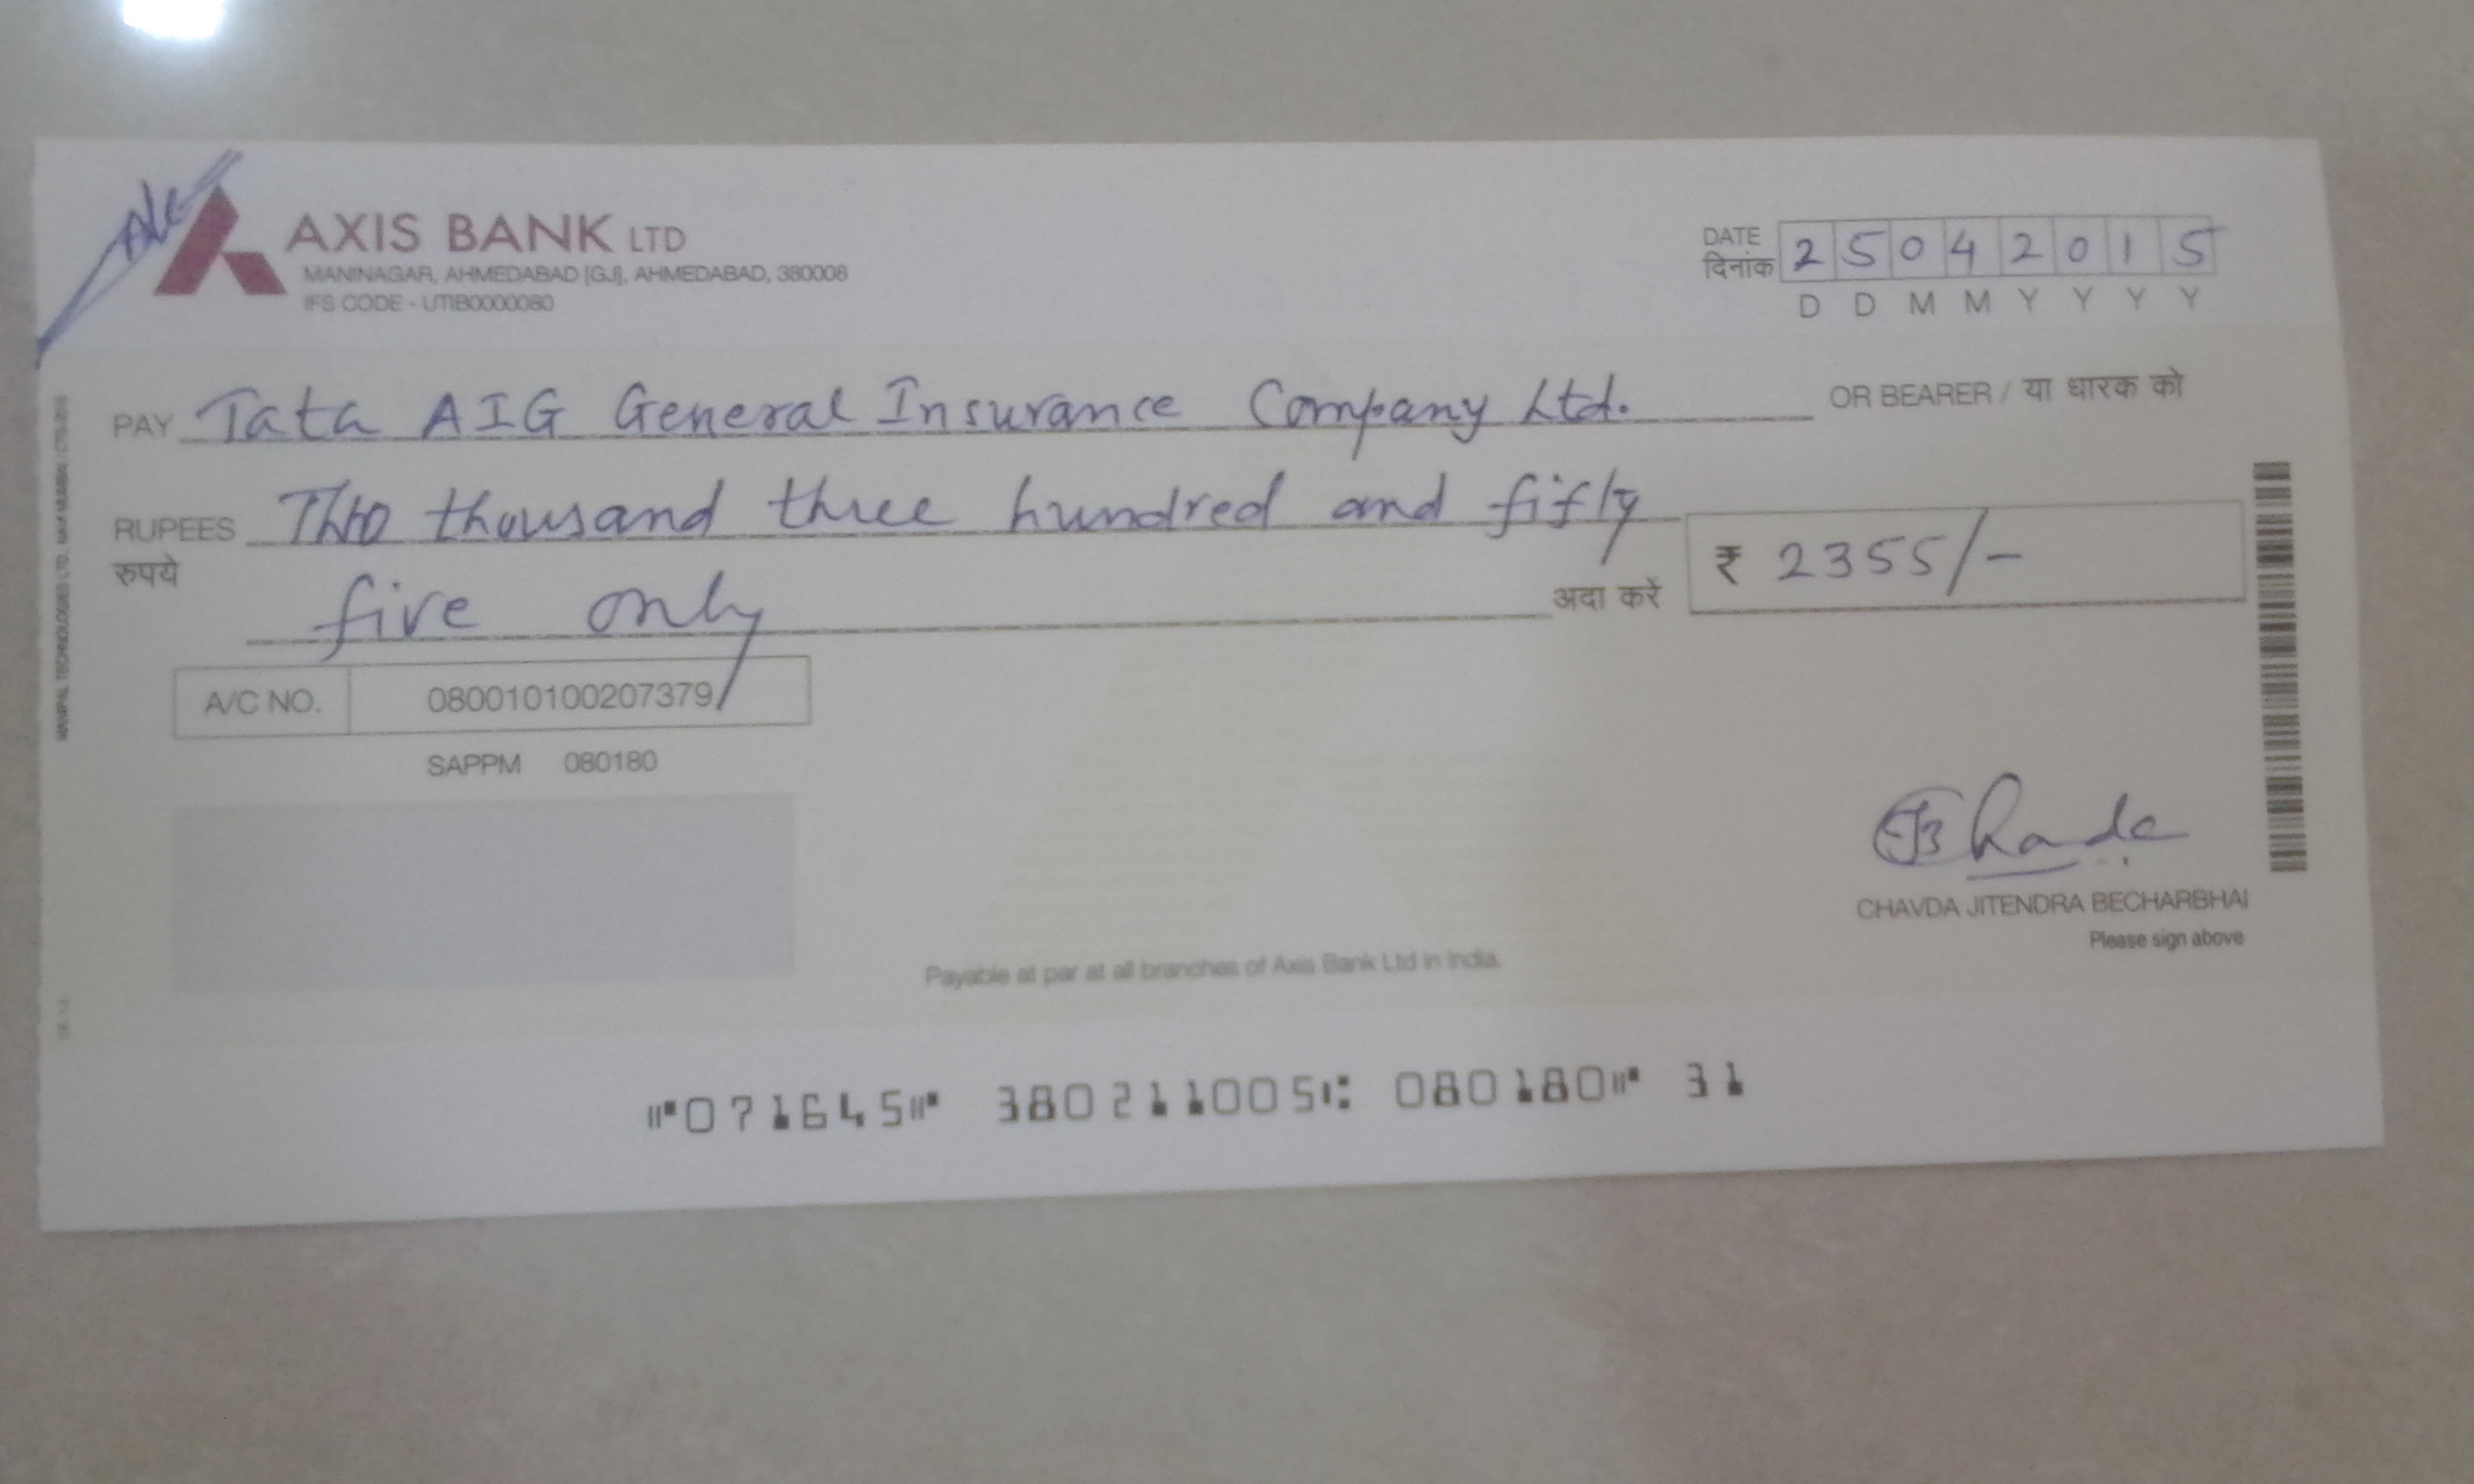 AXIS BANK LTD
MANINAGAR, AHMEDABAD [GJ], AHMEDABAD, 380008
IFS CODE - UTIB0000080
DATE 25042015
दिनांक
D D M M Y Y Y Y
PAY Tata AIG General Insurance Company Ltd. OR BEARER / या धारक को
RUPEES Two thousand three hundred and fifty
रुपये
five only अदा करें ₹ 2355/-
A/C NO. 080010100207379
SAPPM 080180
CHAVDA JITENDRA BECHARBHAI
Please sign above
Payable at par at all branches of Axis Bank Ltd in India.
⑈071645⑈ 380211005⑆ 080180⑈ 31